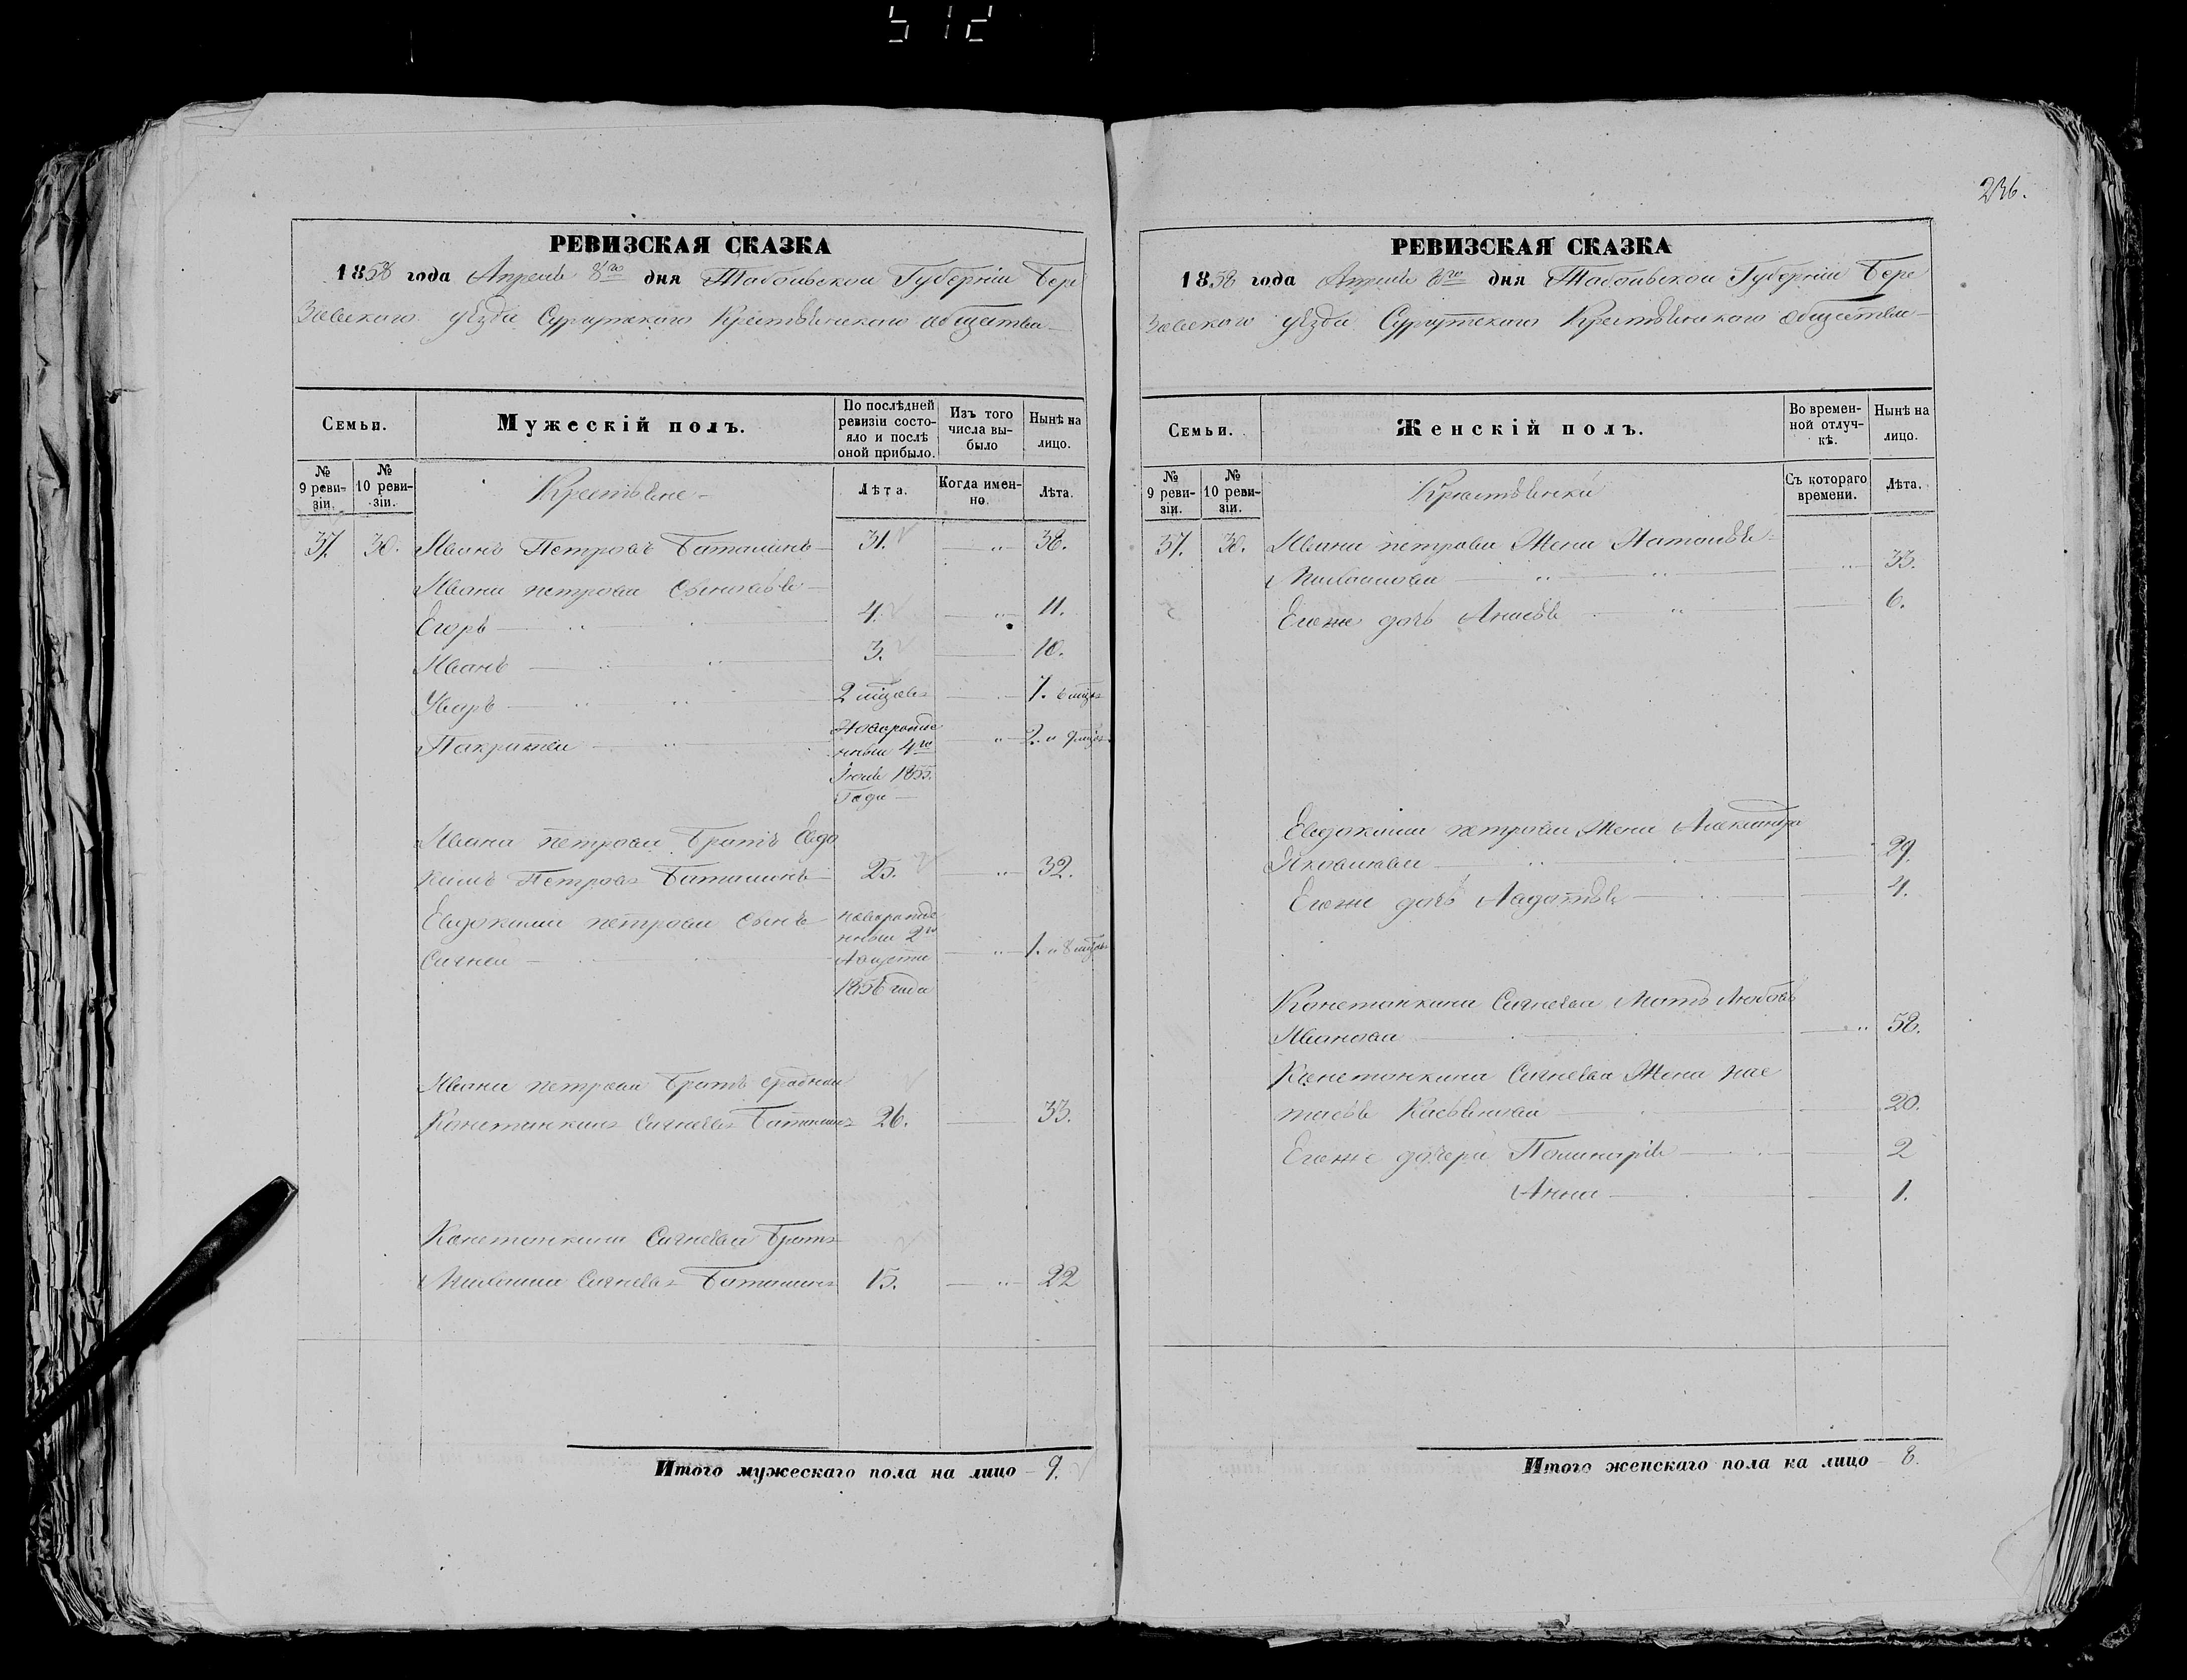 512
236.
РЕВИЗСКАЯ СКАЗКА
1858 года Апреля 8го дня Тобольской Губерніи Бере
зовскаго уѣзда Сургутскаго Крестьянскаго общества
Семьи.
Мужескій полъ.
По послѣдней ревизіи состояло и послѣ оной прибыло.
Изъ того числа выбыло
Нынѣ на лицо.
№ 9 ревизіи.
№ 10 ревизіи.
Крестьяне
Лѣта.
Когда именно.
Лѣта.
37. 30. Иванъ Петровъ Баталинъ 31. 38.
Ивана петрова сыновья
Егоръ 4. 11.
Иванъ 3. 10.
Уваръ 2 мцовъ 7. 6 мцов
новорожде
нный 4го 2. и 9 мцов
1855.
Года
Ивана петрова братъ Евдо
кимъ Петровъ Баталинъ 25. 32.
Евдокима петрова сынъ новорожде
нный 2го
Августа 1. и 8 мцов
1856 года
Ивана петрова братъ
Констанкинъ Баталинъ 26. 33.
Констанкина братъ
Михаила Баталинъ 15. 22
Итого мужескаго пола на лицо 9.
РЕВИЗСКАЯ СКАЗКА
1858 года Апреля 8го дня Тобольской Губерніи Бере
зовскаго уѣзда Сургутскаго Крестьянскаго общества
Семьи.
Женскій полъ.
Во временной отлучкѣ.
Нынѣ на лицо.
№ 9 ревизіи.
№ 10 ревизіи.
Крестьянки
Съ котораго времени.
Лѣта.
37. 30. Ивана петрова жена Наталья
Михайлова 33.
Егоже дочь 6.
Евдокима петрова жена Александра
Яковлева 29.
Егоже дочь 4.
Констанкина мать Любовь
Иванова 58.
Констанкина жена нас
тасья 20.
Егоже дочери 2
Анна 1.
Итого женскаго пола на лицо 8.